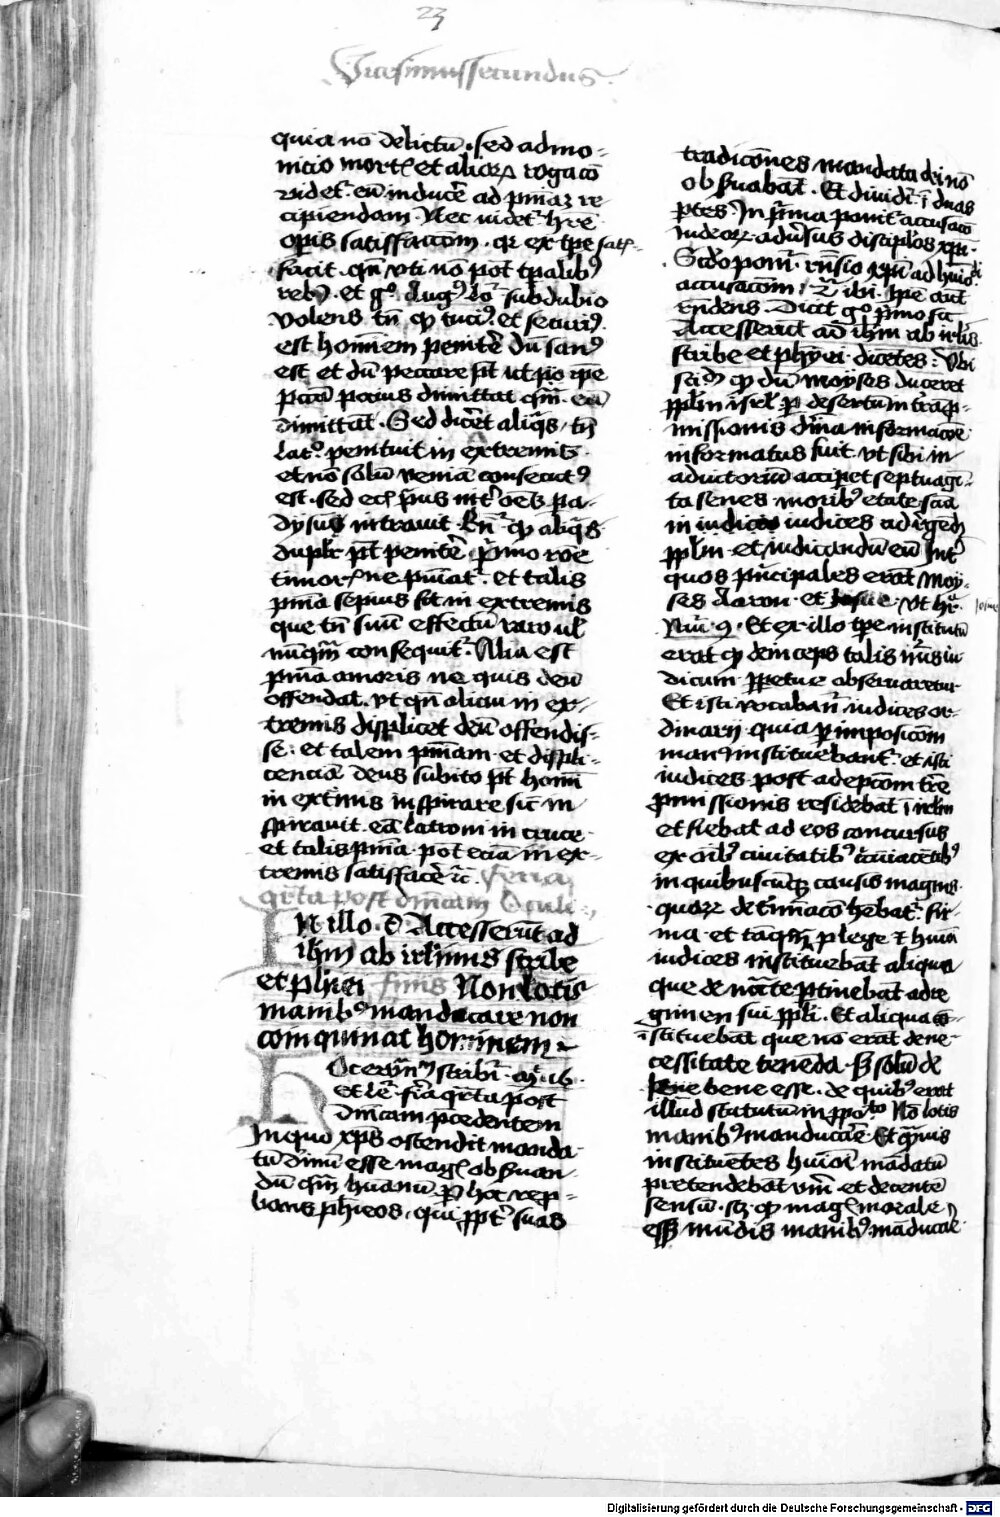 23
Vicesimussecundus
quia nō delictū . sed admo-
nicio mort{ et alioꝝ rogacō
videt᷑ eū inducē ad pniāz re
cipiendam . Nec videt᷑ hr̄e
opis satisfaccōm . qꝛ ex tp̄e satis-
facit . qn̄ vti nō pōt tpalibꝰ
rebꝰ . et gͦ Augꝰ loꝛ sub dubio
volens tn̄ qꝫ tuciꝰ et securiꝰ
est hominem penitē dū sanꝰ
est et dū peccare pt̄
pccā pocius dimittat qm̄ eū
dimittāt . Sed dicēt aliqͥs / tn̄
latͦ penituit in extremis
et nō solū veniā consecutꝰ
est . sed ecī pͥus int᷑ oēs pa-
dysuꝫ intrauit . qꝫ aliqͥs
duplr̄ pt̄ penitē . pͥmo rōe
timor{ ne puniat᷑ . et talis
pnīa sepius fit in extremis
que tn̄ suū effectū raro ul̄
nūqm̄ consequit᷑ . Alia est
pnīa amoris ne quis deū
offendat . vt qn̄ alicui in ex-
tremis displicet deū offendis-
se . et talem pniam . et displi-
cenciā deus subito pt̄ homī
in extīmis inspirare sic̄ in-
spirauit . eā latroni in cruce
et talis pnīa . pōt eciā in ex-
tremis satisfacē ⁊c̄ . feria
qr̄ta post dm̄cam Oculi
IN illo . t̄ Accesserūt ad
ih̄m ab irlimis scribe
et ph̄iei finis Non lotis
manibꝰ manducare non
coinquinat hominem
Hoc ewn̄ꝫ scribit᷑
et le᷑ . fīa qr̄ta post
dm̄cam pcedentem
In quo xp̄s ostendit manda-
tū diuinū esse mag{ obseruan-
dū qm̄ humanū . p hoc rep-
bans ph̄eos . qui ppt᷑ suas
tradicōnes mandata dei nō
obseruabāt . Et diuidit᷑ ī duas
ptes . In pͥma ponit᷑ accusacō
iudeoꝝ aduꝰsus discipl̄os xp̄i
Sc̄do ponit᷑ rn̄sio xp̄i ad huiꝰdi
accusacōm / ibi . Ip̄e aūt
rn̄dens . Dicit gͦ pͥmo sic
Accesserūt ad ih̄m ab irl̄is
scribe et ph̄yei dicētes : Vbi
sciēd qꝫ dū moyses duceret
ppl̄m isrl̄ p desertum in trā p-
missionis diuīa informacōe
informatus fuit vt sibi in
adiutoriū acciperet septuagī-
ta senes moribꝰ etate
in iudices iudices ad rꝰgēdꝫ
ppl̄m et iudicandū eū Int᷑
quos principales erāt Moy-
ses Aaron et Iosue . vt hr̄
Iosue
Nūi . 9 . Et ex illo tp̄e institutū
erat qꝫ deinceps talis nūꝰs iu
dicum ppetue obseruaretur
Et isti vocabant᷑ iudices or-
dinarij quia p imposicōm
manuꝫ instituebant᷑ . et isti
iudices post adepcōm trē
promissionis residebāt ī irl̄m
et fiebat ad eos concursus
ex oībꝰ ciuitatibꝰ
in quibuscūqꝫ causis magnis
quoꝝ det᷑minacō hēbat᷑ fir-
ma . et taqm̄ plege ⁊ huiꝰ
iudices instituebāt aliqua
que de nctāte ptinebāt ad re
gimen sui ppl̄i . Et aliqua ī-
stituebāt que nō erāt de ne-
cessitate tenēda . sꝫ solū de
bene bene esse . de quibꝰ erat
illud statutū in pposͦto Nō lotis
manibꝰ manducāre . Et quāuis
instituētes huiꝰ mādatū
pretendebāt vnū et decentē
sensū . scꝫ qꝫ mag{ morale
esset mūdis manibꝰ māducāe
Digitalisierung gefördert durch die Deutsche Forschungsgemeinschaft - DFG